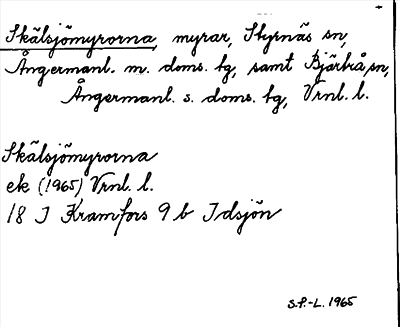 Skälsjömyrorna, myrar, Styrnäs sn,
Ångermanl. m. doms. tg, samt Bjärtrå sn,
Ångermanl. s. doms. tg, Vrnl. l.
Skälsjömyrorna
ek (1965) Vrnl. l.
18 J Kramfors 9 b Idsjön
S.P.-L. 1965